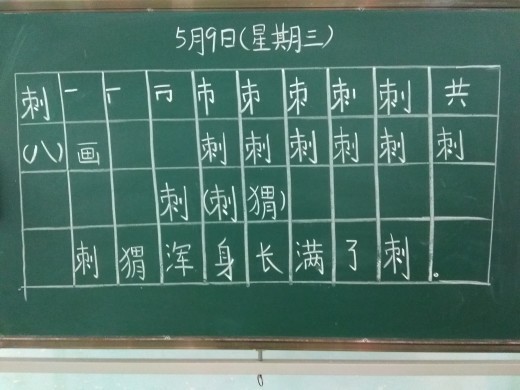 5月9日(星期三)
刺 一 𠄌 冂 市 朿 朿 刺 刺 共
(八) 画 刺 刺 刺 刺 刺 刺
刺 (刺 猬)
刺 猬 浑 身 长 满 了 刺 。